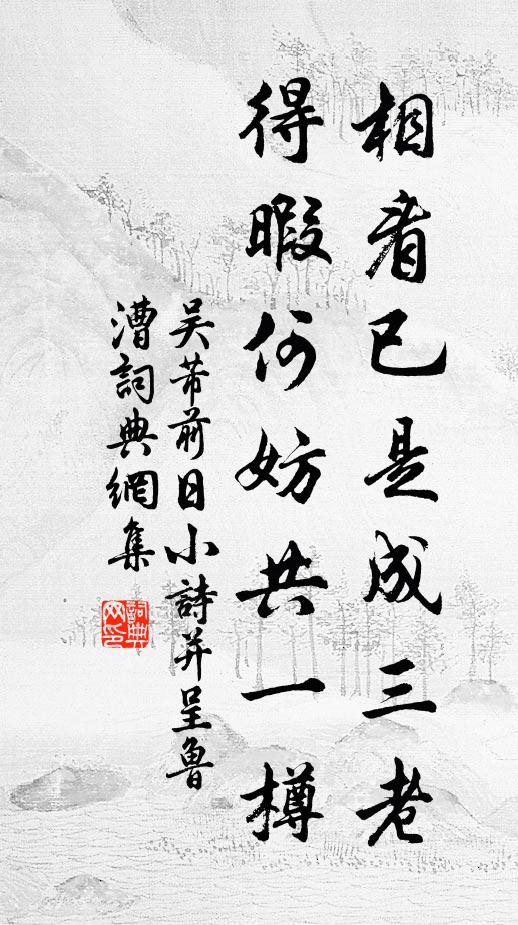 相看已是成三老
得暇何妨共一樽
吴芾前日小詩并呈魯
漕詞典網集
詞典
网印